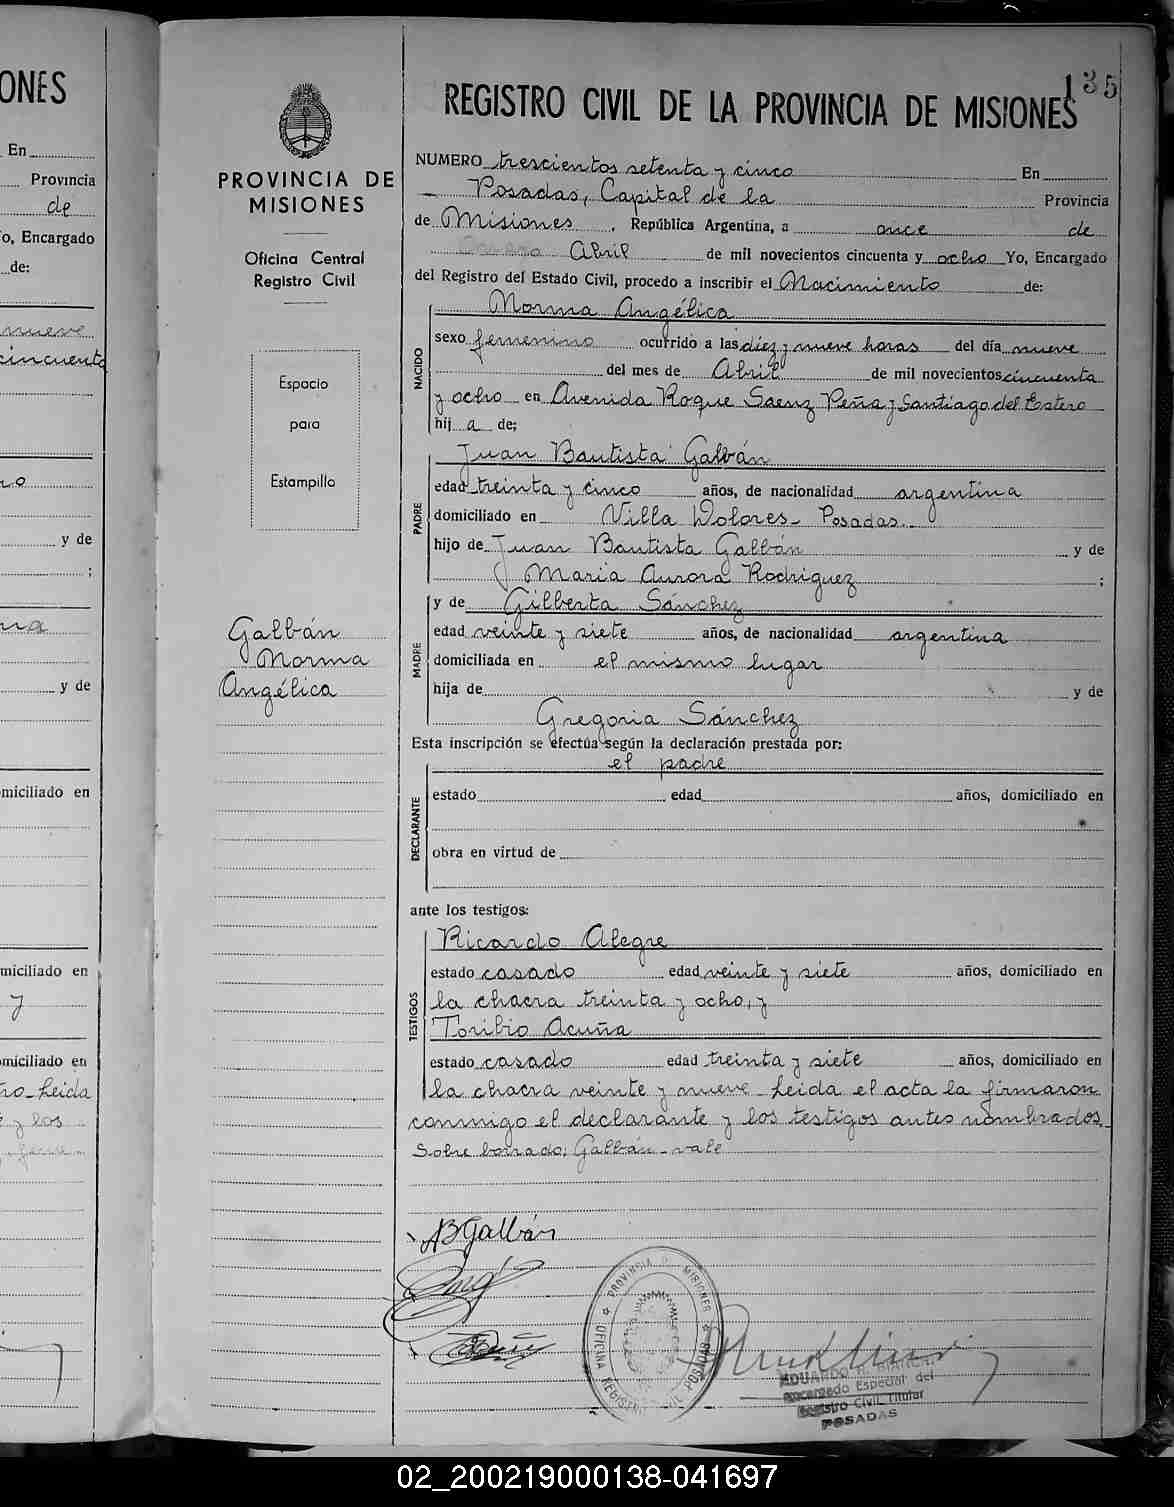 ONES
En
Provincia
de
o, Encargado
de:
nueve
cincuenta
y de
;
y de
miciliado en
miciliado en
y
omiciliado en
Leida
y los
135
PROVINCIA DE
MISIONES
Oficina Central
Registro Civil
Espacio
para
Estampilla
Galbán
Norma
Angélica
REGISTRO CIVIL DE LA PROVINCIA DE MISIONES
NUMERO trescientos setenta y cinco En
Posadas, Capital de la Provincia
de Misiones, República Argentina, a once de
Abril de mil novecientos cincuenta y ocho Yo, Encargado
del Registro del Estado Civil, procedo a inscribir el Nacimiento de:
NACIDO
Norma Angélica
sexo femenino ocurrido a las diez y nueve horas del día nueve
del mes de Abril de mil novecientos cincuenta
y ocho en Avenida Roque Saenz Peña y Santiago del Estero
hij a de;
PADRE
Juan Bautista Galbán
edad treinta y cinco años, de nacionalidad argentina
domiciliado en Villa Dolores - Posadas.
hijo de Juan Bautista Galbán y de
Maria Aurora Rodriguez ;
MADRE
y de Gilberta Sánchez
edad veinte y siete años, de nacionalidad argentina
domiciliada en el mismo lugar
hija de y de
Gregoria Sánchez
Esta inscripción se efectúa según la declaración prestada por:
DECLARANTE
el padre
estado edad años, domiciliado en
obra en virtud de
ante los testigos:
TESTIGOS
Ricardo Alegre
estado casado edad veinte y siete años, domiciliado en
la chacra treinta y ocho, y
Toribio Acuña
estado casado edad treinta y siete años, domiciliado en
la chacra veinte y nueve - Leida el acta la firmaron
conmigo el declarante y los testigos antes nombrados.
Sobre borrado: Galbán - vale
JBGalbán
PROVINCIA D MISIONES
OFICINA REGISTRO POSADAS
Encargado Especial del
Registro Civil Titular
POSADAS
02_200219000138-041697